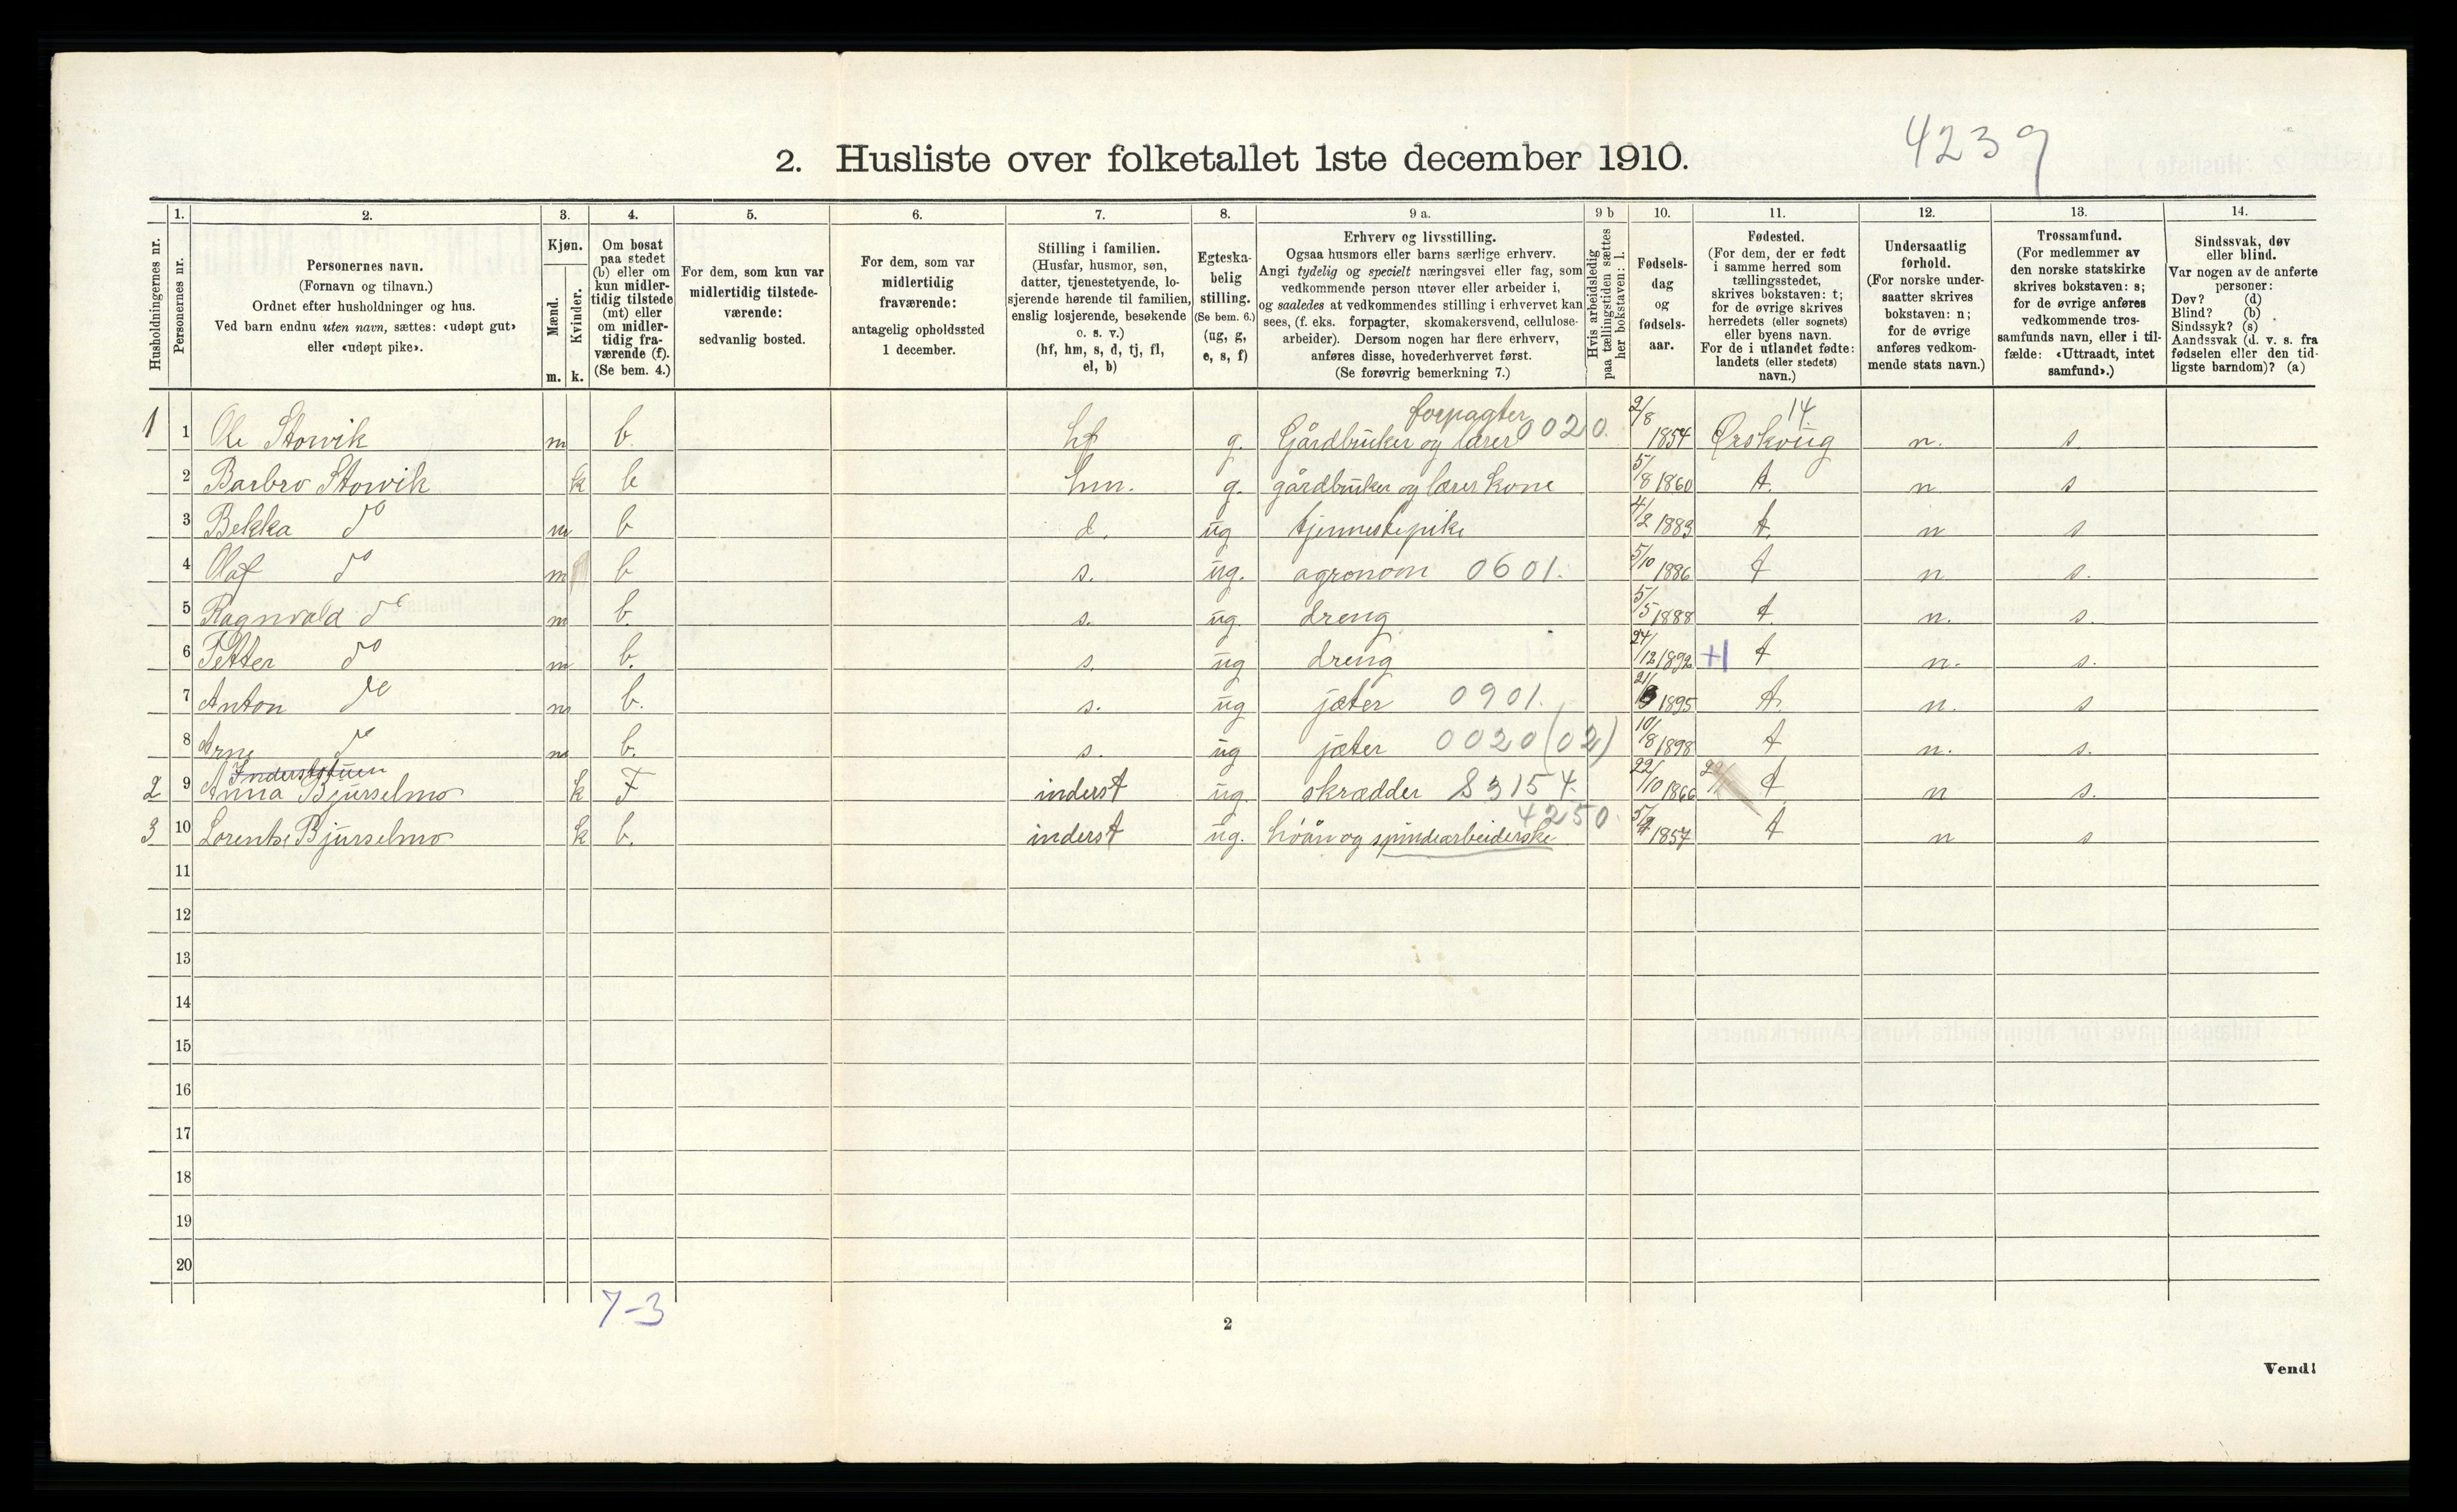 4239
2. Husliste over folketallet 1ste december 1910.
Husholdningernes nr.
1.
Personernes nr.
2.
Personernes navn.
(Fornavn og tilnavn.)
Ordnet efter husholdninger og hus.
Ved barn endnu uten navn, sættes: «udøpt gut»
eller «udøpt pike».
3.
Kjøn.
Mænd.
Kvinder.
m. k.
4.
Om bosat
paa stedet
(b) eller om
kun midler-
tidig tilstede
(mt) eller
om midler-
tidig fra-
værende (f).
(Se bem. 4.)
5.
For dem, som kun var
midlertidig tilstede-
værende:
sedvanlig bosted.
6.
For dem, som var
midlertidig
fraværende:
antagelig opholdssted
1 december.
7.
Stilling i familien.
(Husfar, husmor, søn,
datter, tjenestetyende, lo-
sjerende hørende til familien,
enslig losjerende, besøkende
o. s. v.)
(hf, hm, s, d, tj, fl,
el, b)
8.
Egteska-
belig
stilling.
(Se bem. 6.)
(ug, g,
e, s, f)
9 a.
Erhverv og livsstilling.
Ogsaa husmors eller barns særlige erhverv.
Angi tydelig og specielt næringsvei eller fag, som
vedkommende person utøver eller arbeider i,
og saaledes at vedkommendes stilling i erhvervet kan
sees, (f. eks. forpagter, skomakersvend, cellulose-
arbeider). Dersom nogen har flere erhverv,
anføres disse, hovederhvervet først.
(Se forøvrig bemerkning 7.)
9 b
Hvis arbeidsledig
paa tællingstiden sættes
her bokstaven: l.
10.
Fødsels-
dag
og
fødsels-
aar.
11.
Fødested.
(For dem, der er født
i samme herred som
tællingsstedet,
skrives bokstaven: t;
for de øvrige skrives
herredets (eller sognets)
eller byens navn.
For de i utlandet fødte:
landets (eller stedets)
navn.)
12.
Undersaatlig
forhold.
(For norske under-
saatter skrives
bokstaven: n;
for de øvrige
anføres vedkom-
mende stats navn.)
13.
Trossamfund.
(For medlemmer av
den norske statskirke
skrives bokstaven: s;
for de øvrige anføres
vedkommende tros-
samfunds navn, eller i til-
fælde: «Uttraadt, intet
samfund».)
14.
Sindssvak, døv
eller blind.
Var nogen av de anførte
personer:
Døv? (d)
Blind? (b)
Sindssyk? (s)
Aandssvak (d. v. s. fra
fødselen eller den tid-
ligste barndom)? (a)
forpagter 14
1 1 Ole Storvik m b. hf g. Gårdbruker og lærer 0020. 2/8 1854 Ørskoug n. s.
2 Barbro Storvik k b hm. g. gårdbruker og lærer kone 5/8 1860 t. n s
3 Bekka do m b d. ug tjennestepike 4/2 1883 t. n s
4 Olaf do m b s. ug. agronom 0601. 5/10 1886 t n s.
5 Ragnvald do m b. s. ug. dreng 5/5 1888 t. n. s.
6 Petter do m b. s. ug dreng 24/12 1892 t n. s.
7 Anton do m b. s. ug jæter 0901. 21/3 1895 t. n. s
8 Arne do m b. s. ug jæter 0020 (02) 10/8 1898 t n. s.
Inderststuen
2 9 Anna Bjurselmo k F inderst ug. skrædder S3154. 22/10 1866 t n s.
4250.
3 10 Lorentse Bjurselmo k b. inderst ug. hóån og spindearbeiderske 1857 t n s
11
12
13
14
15
16
17
18
19
20
7-3
2
Vend!